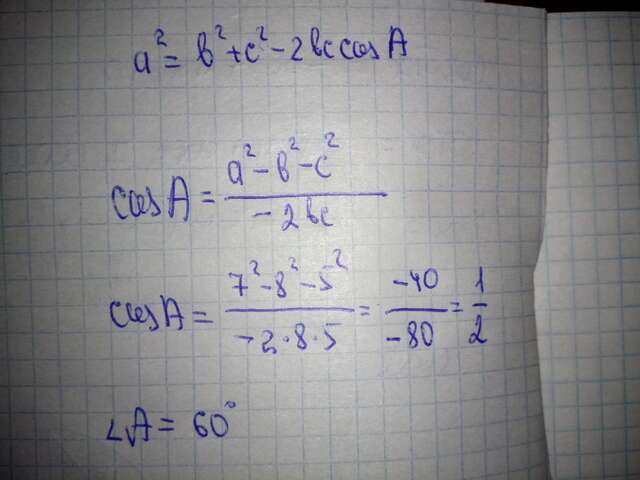 a² = b² + c² - 2bc cos A
cos A = (a² - b² - c²) / (-2bc)
cos A = (7² - 8² - 5²) / (-2·8·5) = -40 / -80 = 1/2
∠A = 60°